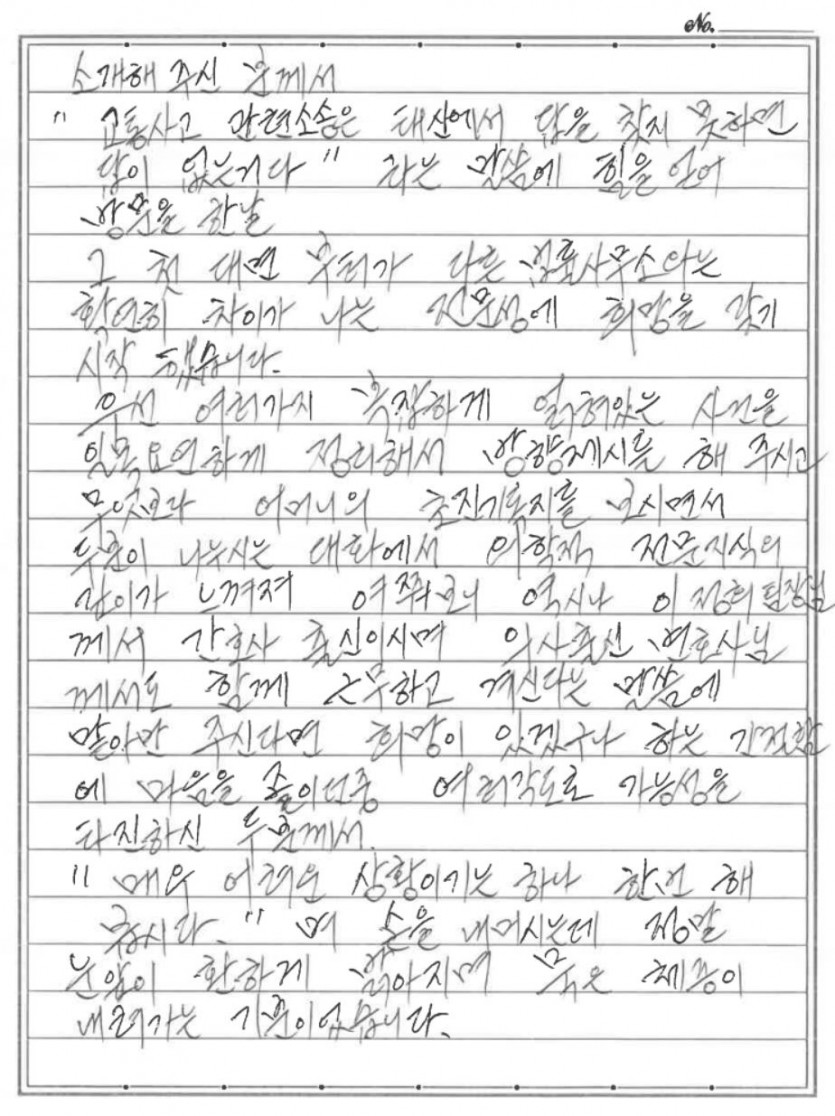 No.
소개해 주신 분께서
" 교통사고 관련소송은 태산에서 답을 찾지 못하면
답이 없는거다 " 라는 말씀에 힘을 얻어
방문을 한날
그 첫 대면 부터가 다른 법률사무소와는
확연히 차이가 나는 전문성에 희망을 갖기
시작 했습니다.
우선 여러가지 복잡하게 얽혀있는 사건을
일목요연하게 정리해서 방향제시를 해 주시고
무엇보다 어머니의 초진기록지를 보시면서
두분이 나누시는 대화에서 의학적 전문지식의
깊이가 느껴져 여쭤보니 역시나 이정희 팀장님
께서 간호사 출신이시며 의사출신 변호사님
께서도 함께 근무하고 계신다는 말씀에
맡아만 주신다면 희망이 있겠구나 하는 간절함
에 마음을 졸이던중 여러각도로 가능성을
타진하신 두분께서
" 매우 어려운 상황이기는 하나 한번 해
봅시다. " 며 손을 내미시는데 정말
눈앞이 환하게 밝아지며 묵은 체증이
내려가는 기분이었습니다.